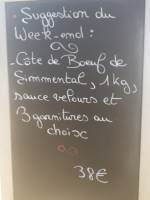 • Suggestion du
Week-end :
- Côte de Boeuf de
Simmental, 1kg,
sauce velours et
3 garnitures au
choix
38€